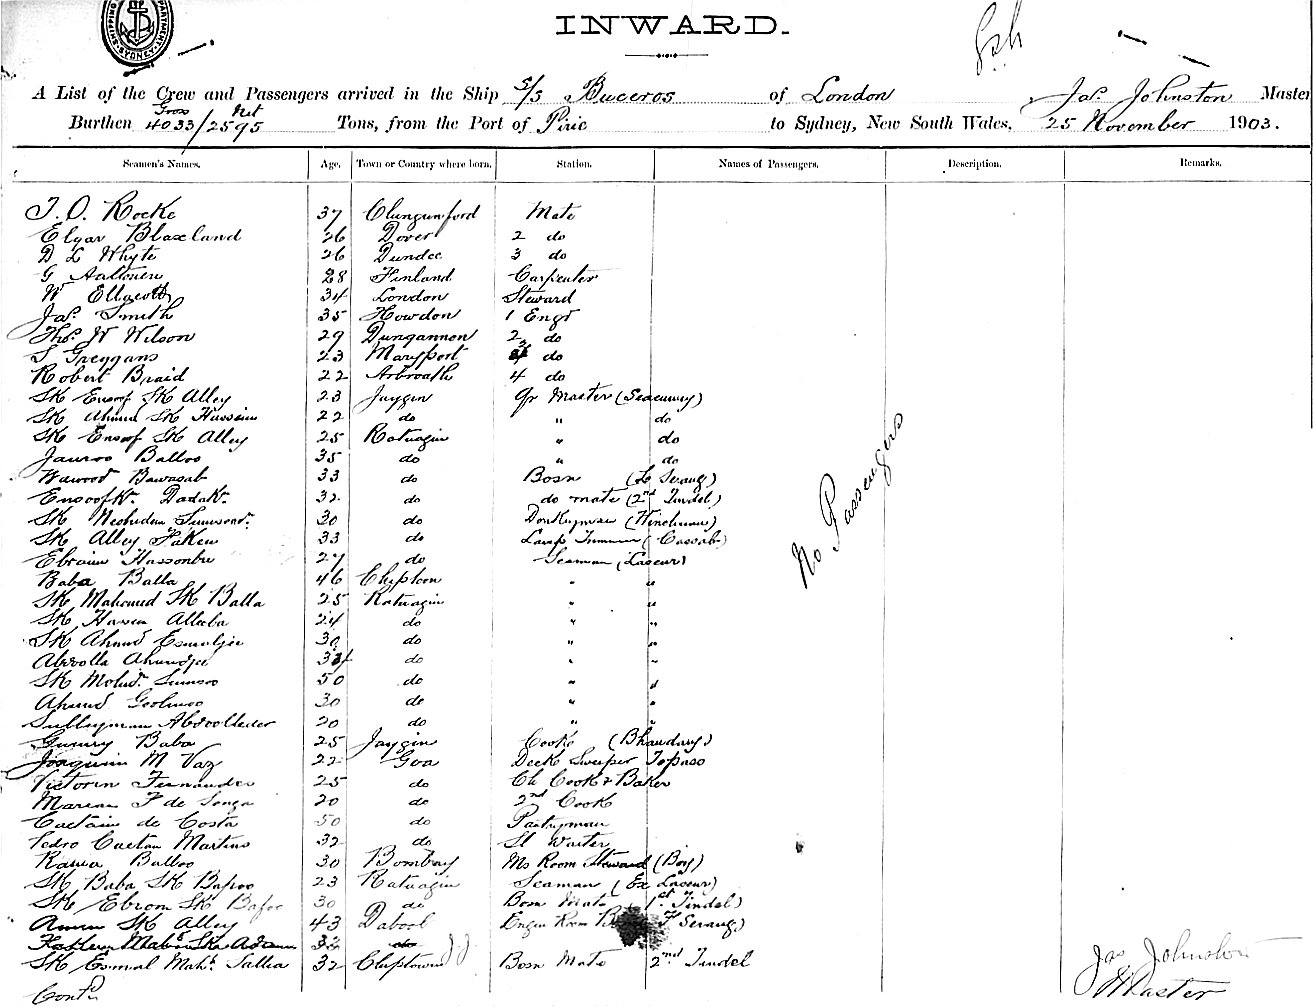 INWARD.
A List of the Crew and Passengers arrived in the Ship S/S Buceros of London Jas. Johnston Master
Burthen Gross Net 4033/2595 Tons, from the Port of Pirie to Sydney, New South Wales, 25 November 1903.
Seamen's Names. Age. Town or Country where born. Station. Names of Passengers. Description. Remarks.
J. O. Rocke 37 Clungunford Mate
Elgar Blaxland 26 Dover 2 do
D L Whyte 26 Dundee 3 do
G Aaltonen 28 Finland Carpenter
W Ellacott 34 London Steward
Jas. Smith 35 Howdon 1 Engr
Thos. W Wilson 29 Dungannon 2 do
S Greggans 23 Maryport 3 do
Robert Braid 22 Arbroath 4 do
SK Ensoof SK Alley 23 Jaygin Qr Master (Seacunny)
SK Ahmed SK Hussein 22 do " do
SK Ensoof SK Alley 25 Ratnagin " do
Jauroo Balloo 35 do " do
Dawood Bawasab 33 do Bosn (Serang)
Ensoofkn. Dadakn. 32 do do mate (2nd Tindel)
SK 30 do Donkeyman (Winchman)
SK Alley Faken 33 do Lamp Trimmer (Cassab)
Ebraim Hassonbu 27 do Seaman (Lascar)
Baba Balla 46 Chiploon " "
SK Mahomed SK Balla 25 Ratnagin " "
SK Allaba 24 do " "
SK Ahmed Esmaljee 30 do " "
Abdolla 34 do " "
SK Mohd. 50 do " "
Ahmed 30 do " "
Sulleyman 20 do " "
Baba 25 Jaygin Cooke (Bhandary)
Joaquim M Vaz 22 Goa Deck Sweeper Topaso
Victorin Fernandes 25 do Ch Cook & Baker
Marian F de Souza 20 do 2nd Cook
Caetain de Costa 50 do Pantryman
Pedro Caetan Martins 32 do St Waiter
Rama Balloo 30 Bombay Ms Room Steward (Boy)
SK Baba SK Bapoo 23 Ratnagin Seaman (Ex Lascar)
SK Ebrom SK Bafoo 30 do Bosn Mate (1st Tindel)
Amin SK Alley 43 Dabool Engin Room F Serang)
32 do
SK Esmal Mahd. Sallia 32 Chiptown Bosn Mate 2nd Tindel
Contd
No Passengers
Jas Johnston
Master